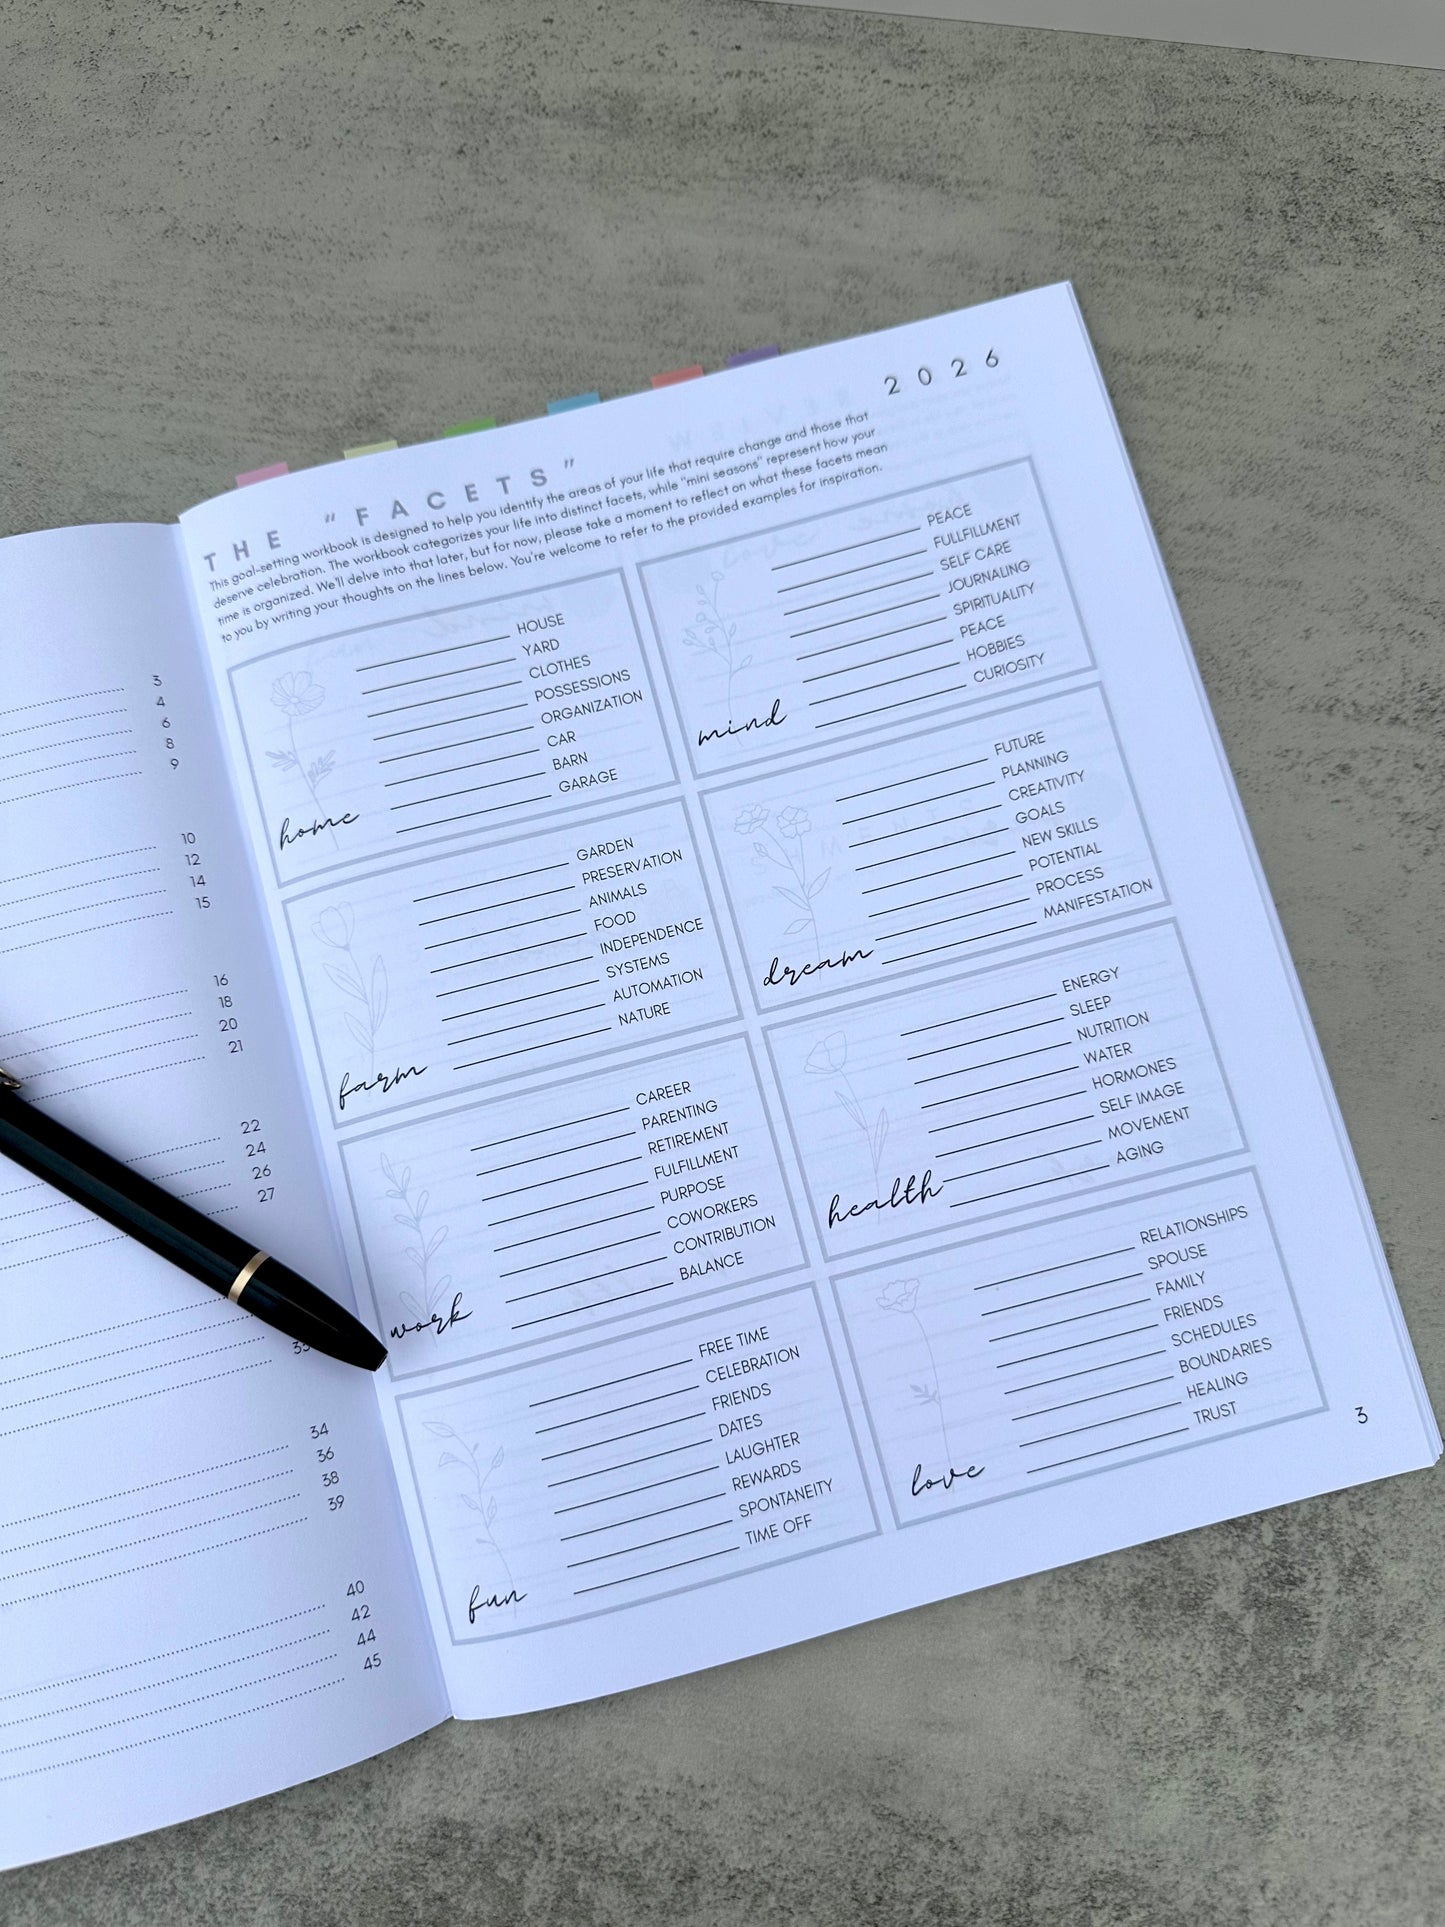 3
4
6
8
9
10
12
14
15
16
18
20
21
22
24
26
27
33
34
36
38
39
40
42
44
45
2026
THE "FACETS"
This goal-setting workbook is designed to help you identify the areas of your life that require change and those that
deserve celebration. The workbook categorizes your life into distinct facets, while "mini seasons" represent how your
time is organized. We'll delve into that later, but for now, please take a moment to reflect on what these facets mean
to you by writing your thoughts on the lines below. You're welcome to refer to the provided examples for inspiration.
HOUSE
YARD
CLOTHES
POSSESSIONS
ORGANIZATION
CAR
BARN
GARAGE
home
PEACE
FULLFILLMENT
SELF CARE
JOURNALING
SPIRITUALITY
PEACE
HOBBIES
CURIOSITY
mind
GARDEN
PRESERVATION
ANIMALS
FOOD
INDEPENDENCE
SYSTEMS
AUTOMATION
NATURE
farm
FUTURE
PLANNING
CREATIVITY
GOALS
NEW SKILLS
POTENTIAL
PROCESS
MANIFESTATION
dream
CAREER
PARENTING
RETIREMENT
FULFILLMENT
PURPOSE
COWORKERS
CONTRIBUTION
BALANCE
work
ENERGY
SLEEP
NUTRITION
WATER
HORMONES
SELF IMAGE
MOVEMENT
AGING
health
FREE TIME
CELEBRATION
FRIENDS
DATES
LAUGHTER
REWARDS
SPONTANEITY
TIME OFF
fun
RELATIONSHIPS
SPOUSE
FAMILY
FRIENDS
SCHEDULES
BOUNDARIES
HEALING
TRUST
love
3